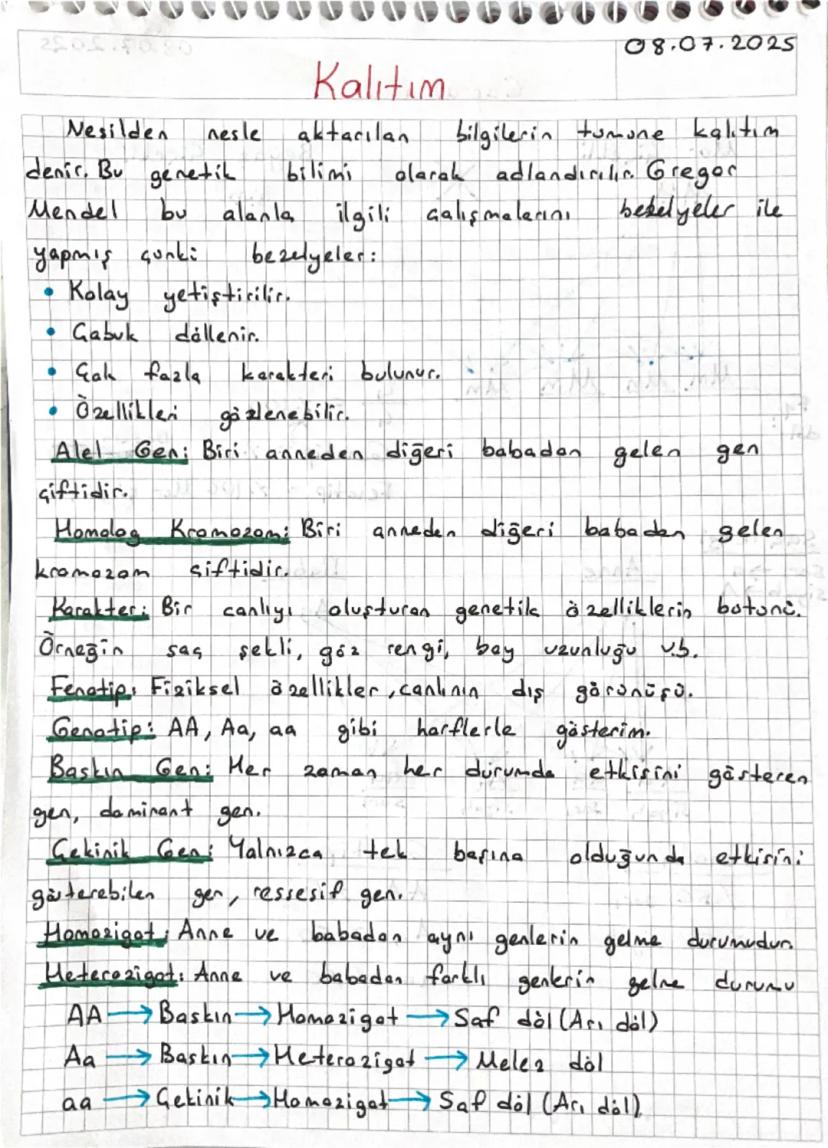 08.07.2025
Kalıtım
Nesilden nesle aktarılan bilgilerin tümüne kalıtım
denir. Bu genetik bilimi olarak adlandırılır. Gregor
Mendel bu alanla ilgili çalışmalarını bezelyeler ile
yapmış çünki bezelyeler:
• Kolay yetiştirilir.
• Çabuk döllenir.
• Çok fazla karakteri bulunur.
• Özellikleri gözlenebilir.
Alel Gen: Biri anneden diğeri babadan gelen gen
çiftidir.
Homolog Kromozom: Biri anneden diğeri babadan gelen
kromozom çiftidir.
Karakter: Bir canlıyı oluşturan genetik özelliklerin bütünü.
Örneğin saç şekli, göz rengi, boy uzunluğu v.b.
Fenotip: Fiziksel özellikler, canlının dış görünüşü.
Genotip: AA, Aa, aa gibi harflerle gösterim.
Baskın Gen: Her zaman her durumda etkisini gösteren
gen, dominant gen.
Çekinik Gen: Yalnızca tek başına olduğunda etkisini
gösterebilen gen, ressesif gen.
Homozigot: Anne ve babadan aynı genlerin gelme durumudur.
Heterozigot: Anne ve babadan farklı genlerin gelme durumu
AA → Baskın → Homozigot → Saf döl (Arı döl)
Aa → Baskın → Heterozigot → Melez döl
aa → Çekinik → Homozigot → Saf döl (Arı döl)